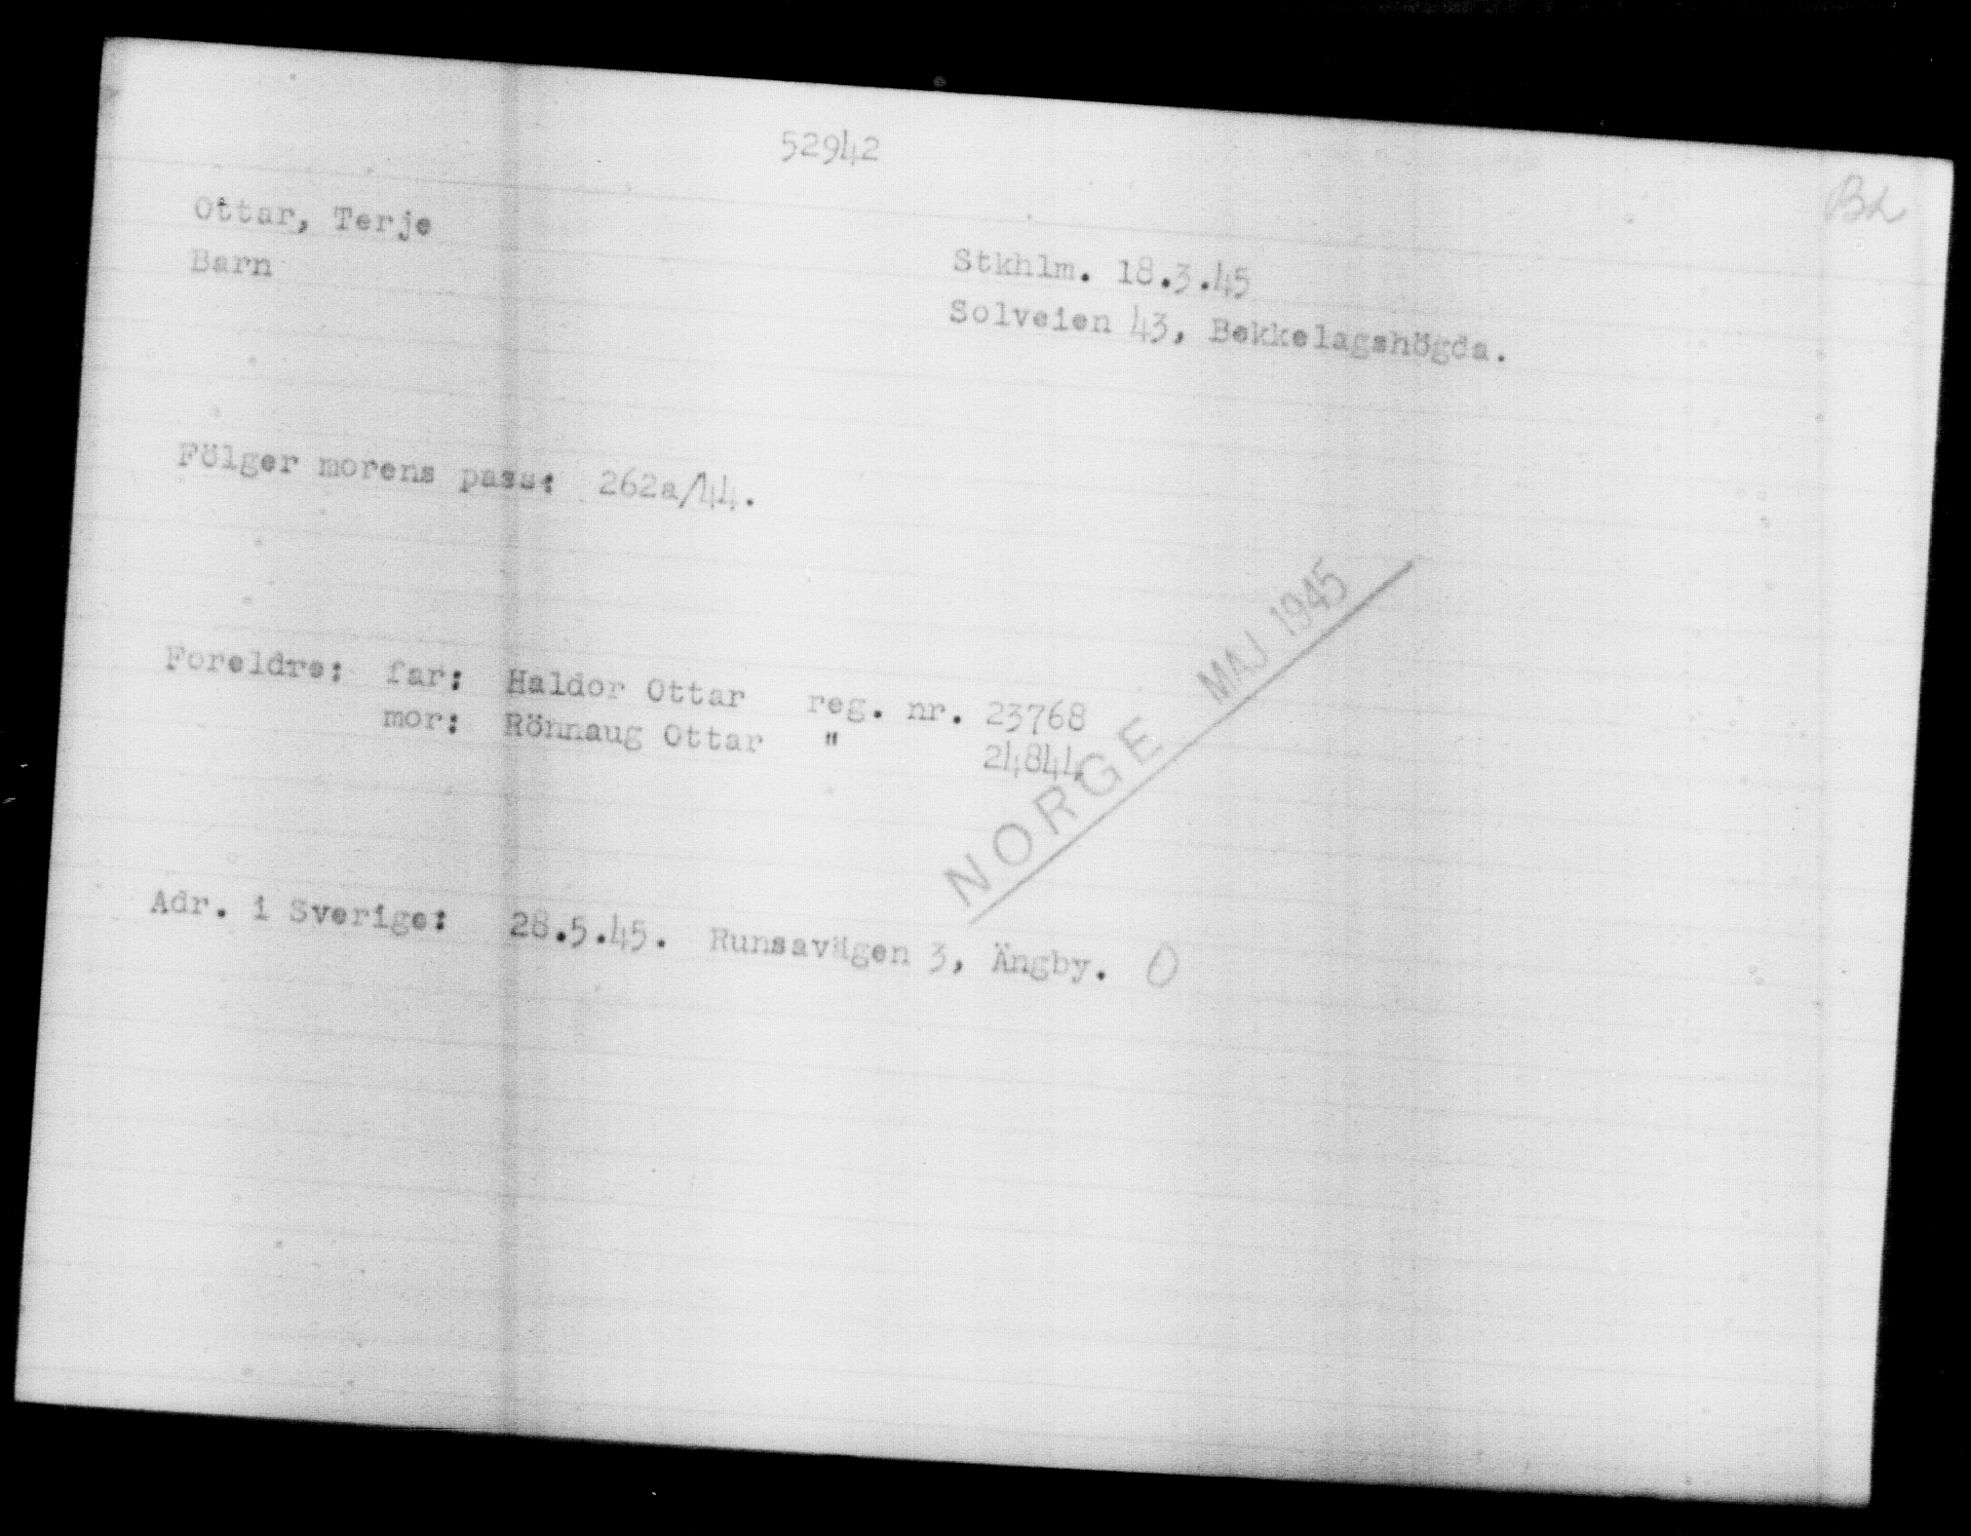 52942
Ottar, Terje
Barn
Stkhlm. 18.3.45
Solveien 43, Bekkelagshögda.
Fölger morens pass: 262a/44.
Foreldre: far: Haldor Ottar reg. nr. 23768
mor: Rönnaug Ottar " 24844
NORGE MAJ 1945
Adr. i Sverige: 28.5.45. Runsavägen 3, Ängby. O